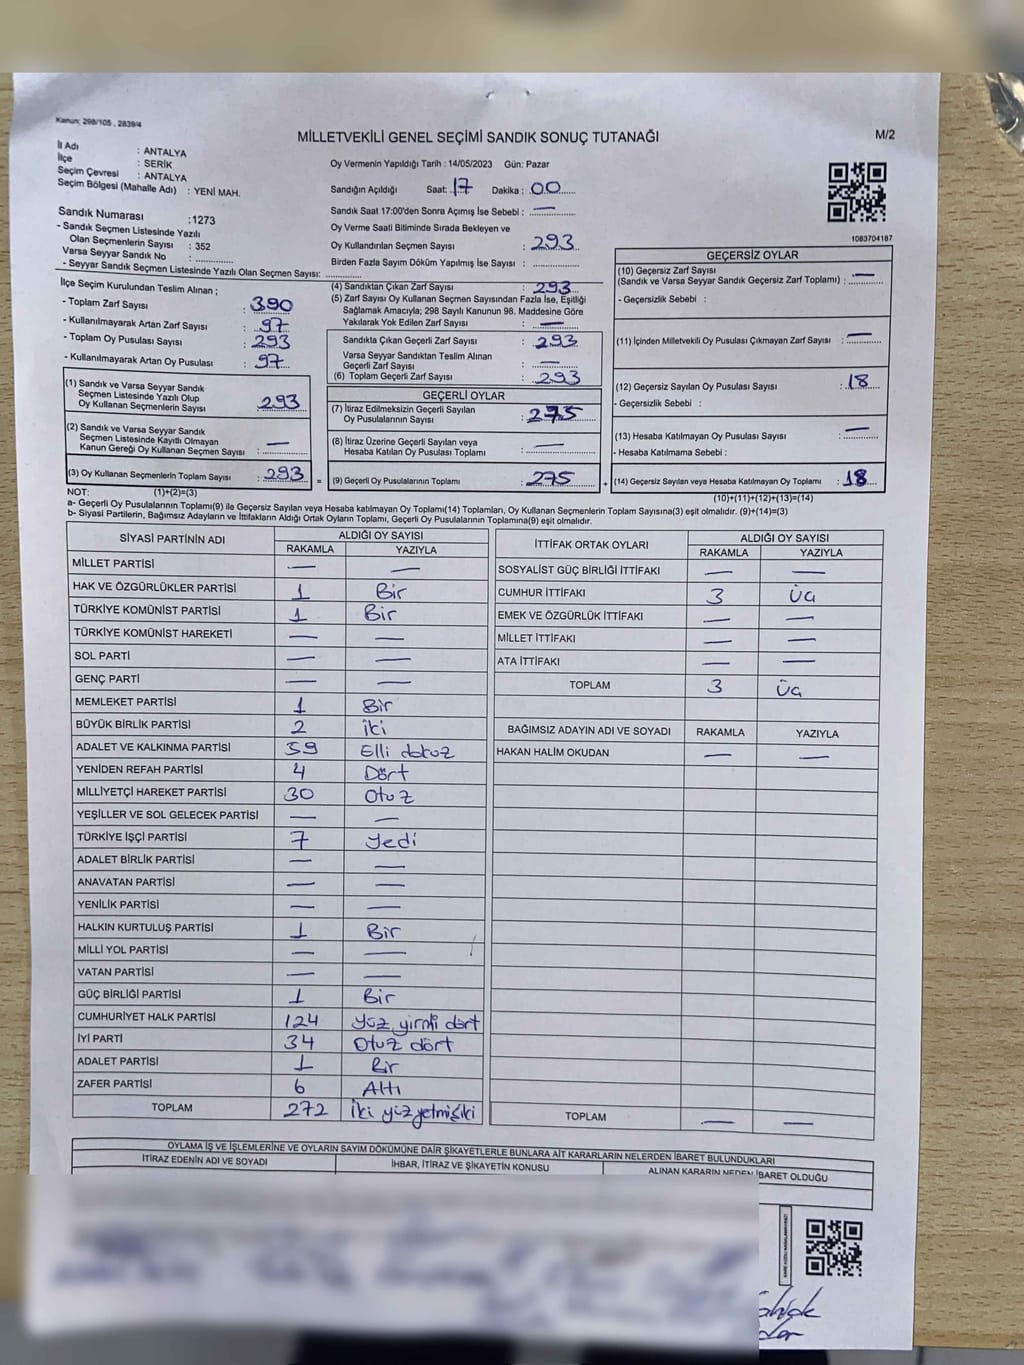 Kanun; 298/105 , 2839/4
MİLLETVEKİLİ GENEL SEÇİMİ SANDIK SONUÇ TUTANAĞI
M/2
İl Adı : ANTALYA
İlçe : SERİK
Seçim Çevresi : ANTALYA
Seçim Bölgesi (Mahalle Adı) : YENİ MAH.
Oy Vermenin Yapıldığı Tarih : 14/05/2023 Gün: Pazar
Sandığın Açıldığı Saat: 17 Dakika : 00
Sandık Saat 17:00'den Sonra Açımış İse Sebebi : —
Oy Verme Saati Bitiminde Sırada Bekleyen ve
Oy Kullandırılan Seçmen Sayısı : 293
Birden Fazla Sayım Döküm Yapılmış İse Sayısı :
Sandık Numarası :1273
- Sandık Seçmen Listesinde Yazılı
Olan Seçmenlerin Sayısı : 352
Varsa Seyyar Sandık No :
- Seyyar Sandık Seçmen Listesinde Yazılı Olan Seçmen Sayısı:
1083704187
İlçe Seçim Kurulundan Teslim Alınan ;
- Toplam Zarf Sayısı : 390
- Kullanılmayarak Artan Zarf Sayısı : 97
- Toplam Oy Pusulası Sayısı : 293
- Kullanılmayarak Artan Oy Pusulası : 97
(1) Sandık ve Varsa Seyyar Sandık
Seçmen Listesinde Yazılı Olup
Oy Kullanan Seçmenlerin Sayısı : 293
(2) Sandık ve Varsa Seyyar Sandık
Seçmen Listesinde Kayıtlı Olmayan
Kanun Gereği Oy Kullanan Seçmen Sayısı : —
(3) Oy Kullanan Seçmenlerin Toplam Sayısı : 293
(4) Sandıktan Çıkan Zarf Sayısı : 293
(5) Zarf Sayısı Oy Kullanan Seçmen Sayısından Fazla İse, Eşitliği
Sağlamak Amacıyla; 298 Sayılı Kanunun 98. Maddesine Göre
Yakılarak Yok Edilen Zarf Sayısı : —
Sandıkta Çıkan Geçerli Zarf Sayısı : 293
Varsa Seyyar Sandıktan Teslim Alınan
Geçerli Zarf Sayısı : —
(6) Toplam Geçerli Zarf Sayısı : 293
GEÇERLİ OYLAR
(7) İtiraz Edilmeksizin Geçerli Sayılan
Oy Pusulalarının Sayısı : 275
(8) İtiraz Üzerine Geçerli Sayılan veya
Hesaba Katılan Oy Pusulası Toplamı : —
= (9) Geçerli Oy Pusulalarının Toplamı : 275
GEÇERSİZ OYLAR
(10) Geçersiz Zarf Sayısı
(Sandık ve Varsa Seyyar Sandık Geçersiz Zarf Toplamı) : —
- Geçersizlik Sebebi :
(11) İçinden Milletvekili Oy Pusulası Çıkmayan Zarf Sayısı : —
(12) Geçersiz Sayılan Oy Pusulası Sayısı : 18
- Geçersizlik Sebebi :
(13) Hesaba Katılmayan Oy Pusulası Sayısı : —
- Hesaba Katılmama Sebebi :
+ (14) Geçersiz Sayılan veya Hesaba Katılmayan Oy Toplamı : 18
NOT: (1)+(2)=(3)
(10)+(11)+(12)+(13)=(14)
a- Geçerli Oy Pusulasının Toplamı(9) ile Geçersiz Sayılan veya Hesaba katılmayan Oy Toplamı(14) Toplamları, Oy Kullanan Seçmenlerin Toplam Sayısına(3) eşit olmalıdır. (9)+(14)=(3)
b- Siyasi Partilerin, Bağımsız Adayların ve İttifakların Aldığı Ortak Oyların Toplamı, Geçerli Oy Pusulalarının Toplamına(9) eşit olmalıdır.
SİYASİ PARTİNİN ADI ALDIĞI OY SAYISI
RAKAMLA YAZIYLA
MİLLET PARTİSİ — —
HAK VE ÖZGÜRLÜKLER PARTİSİ 1 Bir
TÜRKİYE KOMÜNİST PARTİSİ 1 Bir
TÜRKİYE KOMÜNİST HAREKETİ — —
SOL PARTİ — —
GENÇ PARTİ — —
MEMLEKET PARTİSİ 1 Bir
BÜYÜK BİRLİK PARTİSİ 2 iki
ADALET VE KALKINMA PARTİSİ 59 Elli dokuz
YENİDEN REFAH PARTİSİ 4 Dört
MİLLİYETÇİ HAREKET PARTİSİ 30 Otuz
YEŞİLLER VE SOL GELECEK PARTİSİ — —
TÜRKİYE İŞÇİ PARTİSİ 7 Yedi
ADALET BİRLİK PARTİSİ — —
ANAVATAN PARTİSİ — —
YENİLİK PARTİSİ — —
HALKIN KURTULUŞ PARTİSİ 1 Bir
MİLLİ YOL PARTİSİ — —
VATAN PARTİSİ — —
GÜÇ BİRLİĞİ PARTİSİ 1 Bir
CUMHURİYET HALK PARTİSİ 124 Yüz yirmi dört
İYİ PARTİ 34 Otuz dört
ADALET PARTİSİ 1 Bir
ZAFER PARTİSİ 6 Altı
TOPLAM 272 İki yüz yetmişiki
İTTİFAK ORTAK OYLARI ALDIĞI OY SAYISI
RAKAMLA YAZIYLA
SOSYALİST GÜÇ BİRLİĞİ İTTİFAKI — —
CUMHUR İTTİFAKI 3 Üç
EMEK VE ÖZGÜRLÜK İTTİFAKI — —
MİLLET İTTİFAKI — —
ATA İTTİFAKI — —
TOPLAM 3 Üç
BAĞIMSIZ ADAYIN ADI VE SOYADI RAKAMLA YAZIYLA
HAKAN HALİM OKUDAN — —
TOPLAM — —
OYLAMA İŞ VE İŞLEMLERİNE VE OYLARIN SAYIM DÖKÜMÜNE DAİR ŞİKAYETLERLE BUNLARA AİT KARARLARIN NELERDEN İBARET BULUNDUKLARI
İTİRAZ EDENİN ADI VE SOYADI İHBAR, İTİRAZ VE ŞİKAYETİN KONUSU ALINAN KARARIN NEDEN İBARET OLDUĞU